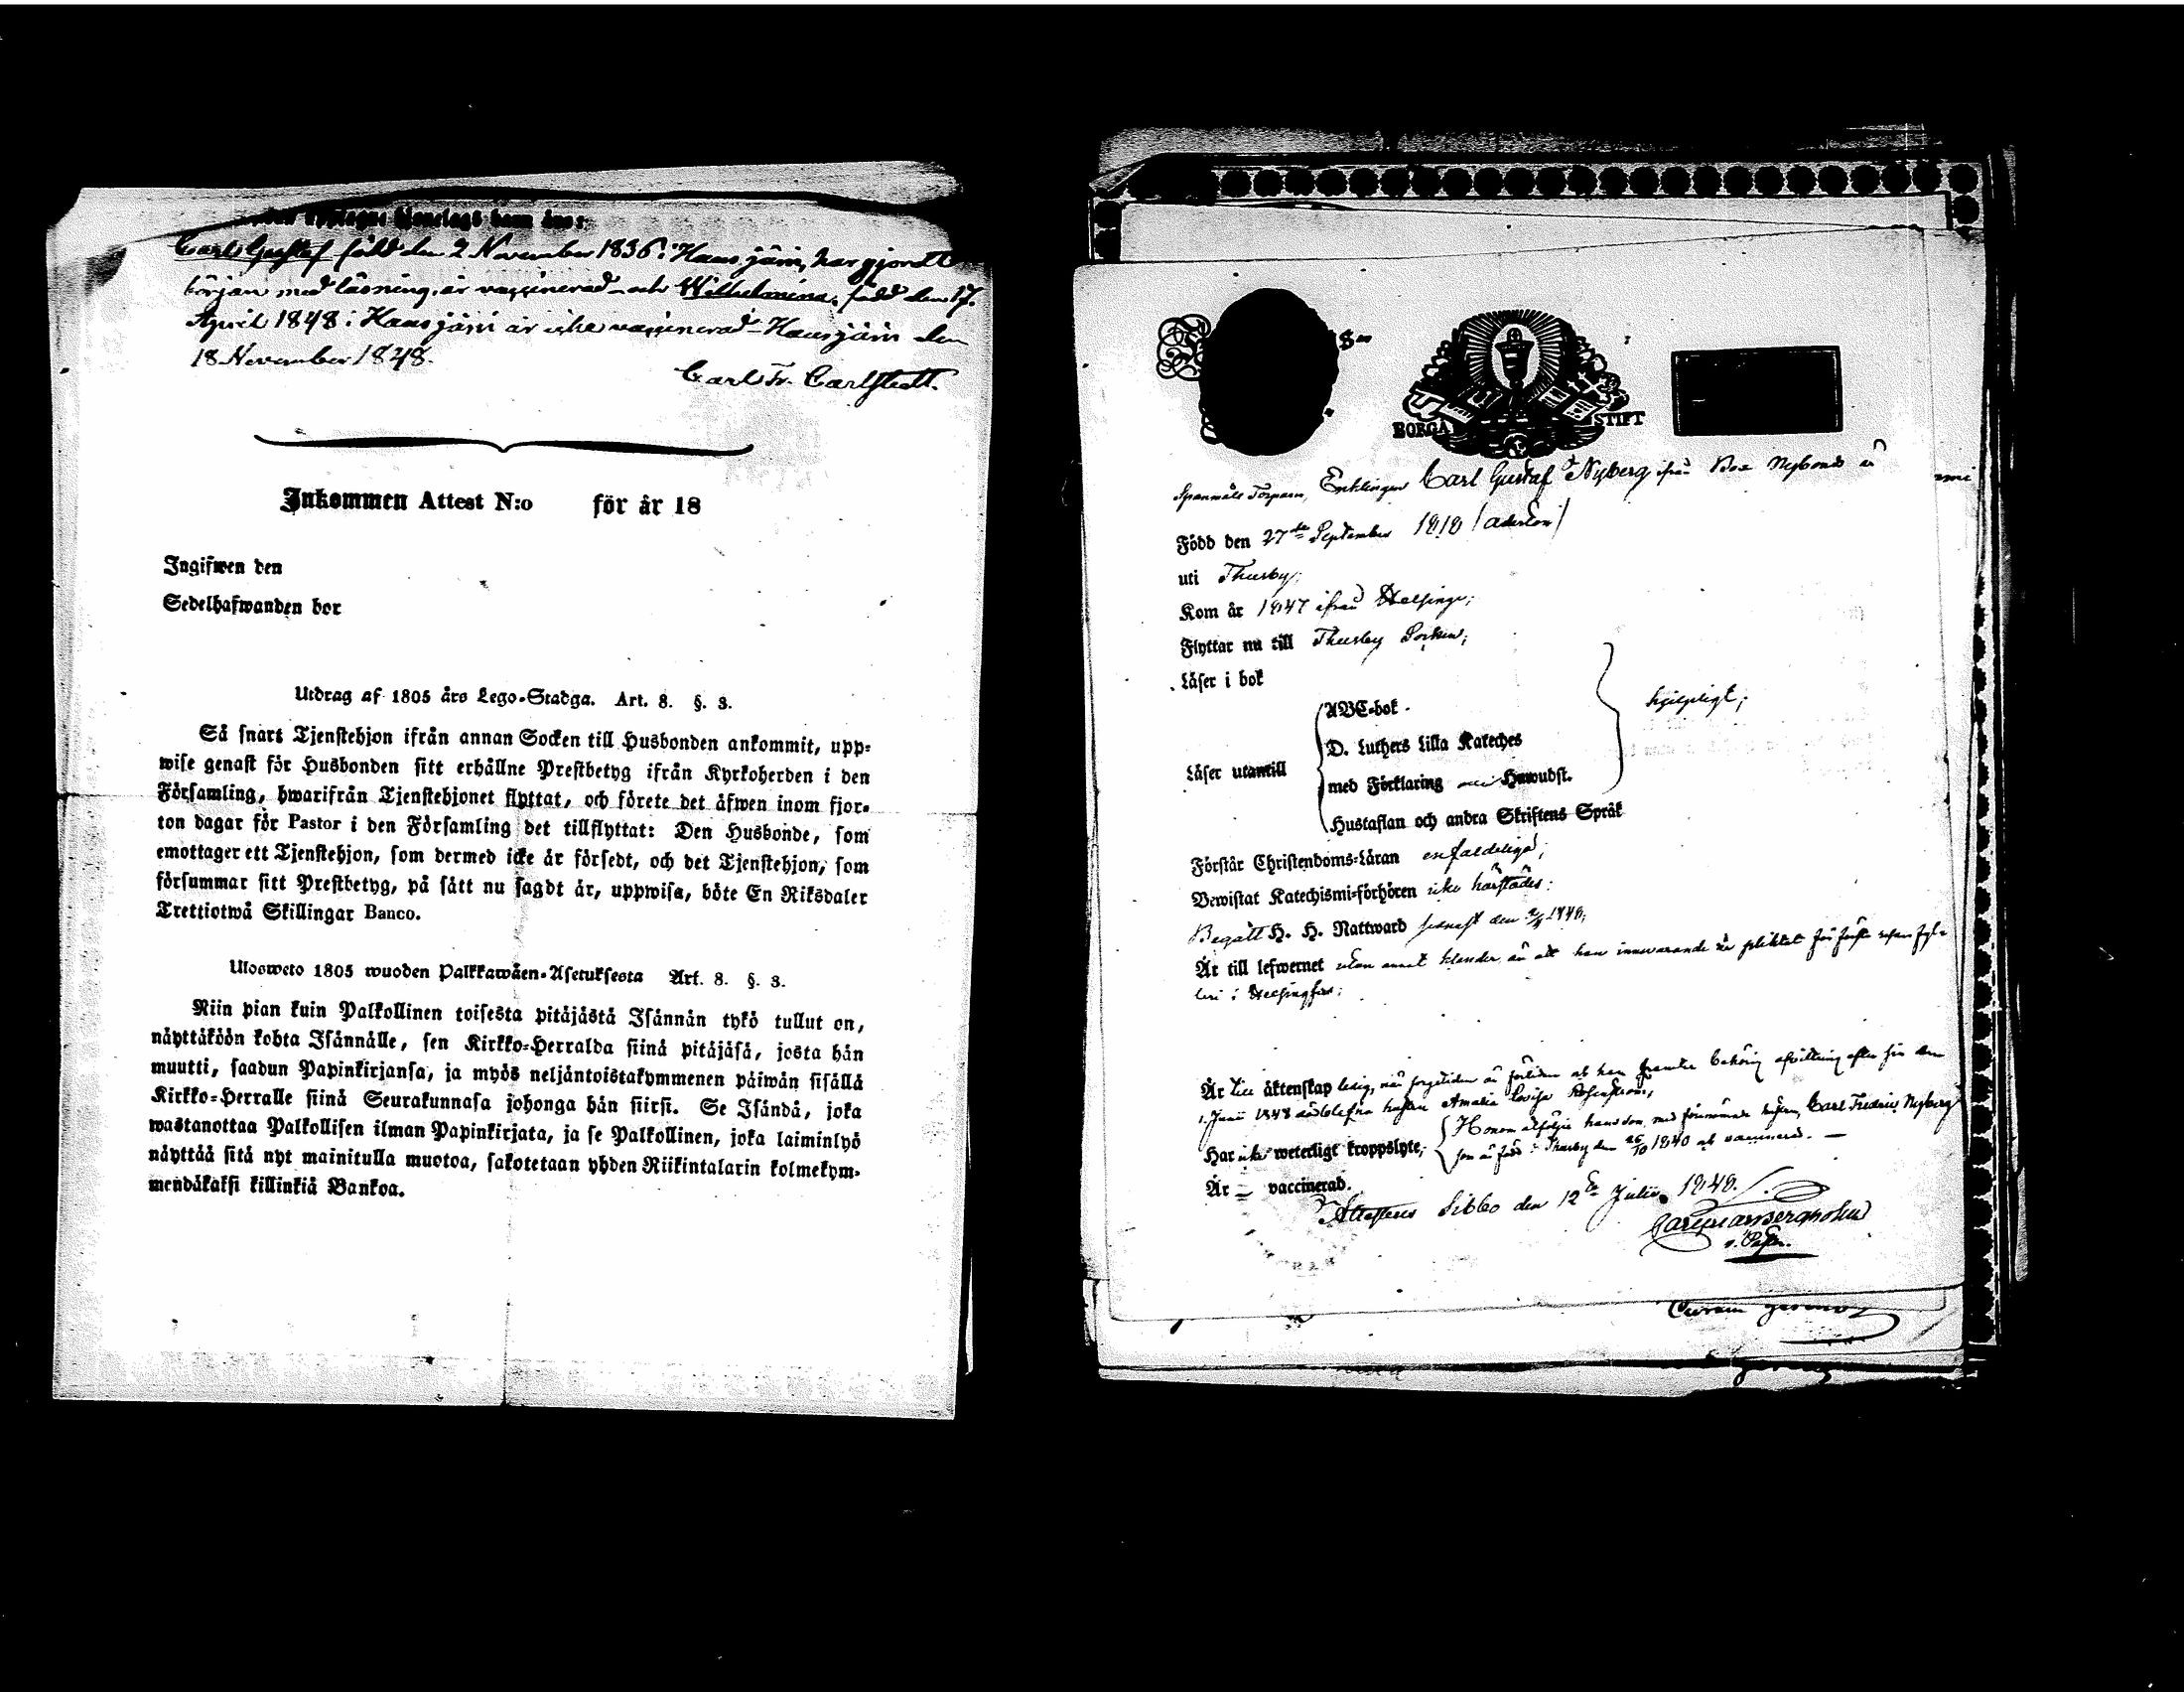 Carl Gustaf född den 2 November 1836 i Hausjärvi, har gjordt
början med läsning, är vaccinerad - och Wilhelmina, född den 17.
April 1848 i Hausjärvi är icke vaccinerad - Hausjärvi den
18 November 1848.
Carl Fr. Carlstedt.
Inkommen Attest N:o för år 18
Ingifwen den
Sedelhafwanden bor
Utdrag af 1805 års Lego-Stadga. Art. 8. §. 3.
Så snart Tjenstehjon ifrån annan Socken till Husbonden ankommit, upp-
wise genast för Husbonden sitt erhållne Prestbetyg ifrån Kyrkoherden i den
Församling, hwarifrån Tjenstehjonet flyttat, och förete det äfwen inom fjor-
ton dagar för Pastor i den Församling det tillflyttat: Den Husbonde, som
emottager ett Tjenstehjon, som dermed icke är försedt, och det Tjenstehjon, som
försummar sitt Prestbetyg, på sätt nu sagdt är, uppwisa, böte En Riksdaler
Trettiotwå Skillingar Banco.
Ulosweto 1805 wuoden Palkkawäen-Asetuksesta Art. 8. §. 3.
Niin pian kuin Palkollinen toisesta pitäjästä Isännän tykö tullut on,
näyttäköön kohta Isännälle, sen Kirkko-Herralda siinä pitäjäsä, josta hän
muutti, saadun Papinkirjansa, ja myös neljäntoistakymmenen päiwän sisällä
Kirkko-Herralle siinä Seurakunnasa johonga hän siirsi. Se Isändä, joka
wastanottaa Palkollisen ilman Papinkirjata, ja se Palkollinen, joka laiminlyö
näyttää sitä nyt mainitulla muotoa, sakotetaan yhden Riikintalarin kolmekym-
mendäkaksi killinkiä Bankoa.
BORGÅ STIFT
Spanmåls Torparen, Enklingen Carl Gustaf Nyberg ifrån Box Nybond är
Född den 27de September 1818 /aderton/
uti Thusby;
Kom år 1847 ifrån Helsinge;
Flyttar nu till Thusby Socken;
Läser i bok
ABC-bok
D. Luthers Lilla Kateches
Läser utantill
med Förklaring Huwudst.
Hustaflan och andra Skriftens Språk
hjelpligt;
Förstår Christendoms-Läran enfaldeligt;
Bewistat Katechismi-förhören icke härstädes;
Begått H. H. Nattward senast den 1848;
Är till lefwernet utan annat klander än att han innevarande år pliktat för första resan fyl-
leri i Helsingfors;
Är till äktenskap ledig, när sorgetiden är förliden och han framter behörig afvittring efter sin den
1. Junii 1848 aflidna hustru Amalia Lovisa
Har icke weterligt kroppslyte; Honom åtföljer hans son med förenämnde hustru, Carl Fredric Nyberg
som är född i Thusby den 26/10 1840 och vaccinerad. —
Är — vaccinerad.
Attesteras Sibbo den 12te Julii 1848.
v. Pastor.